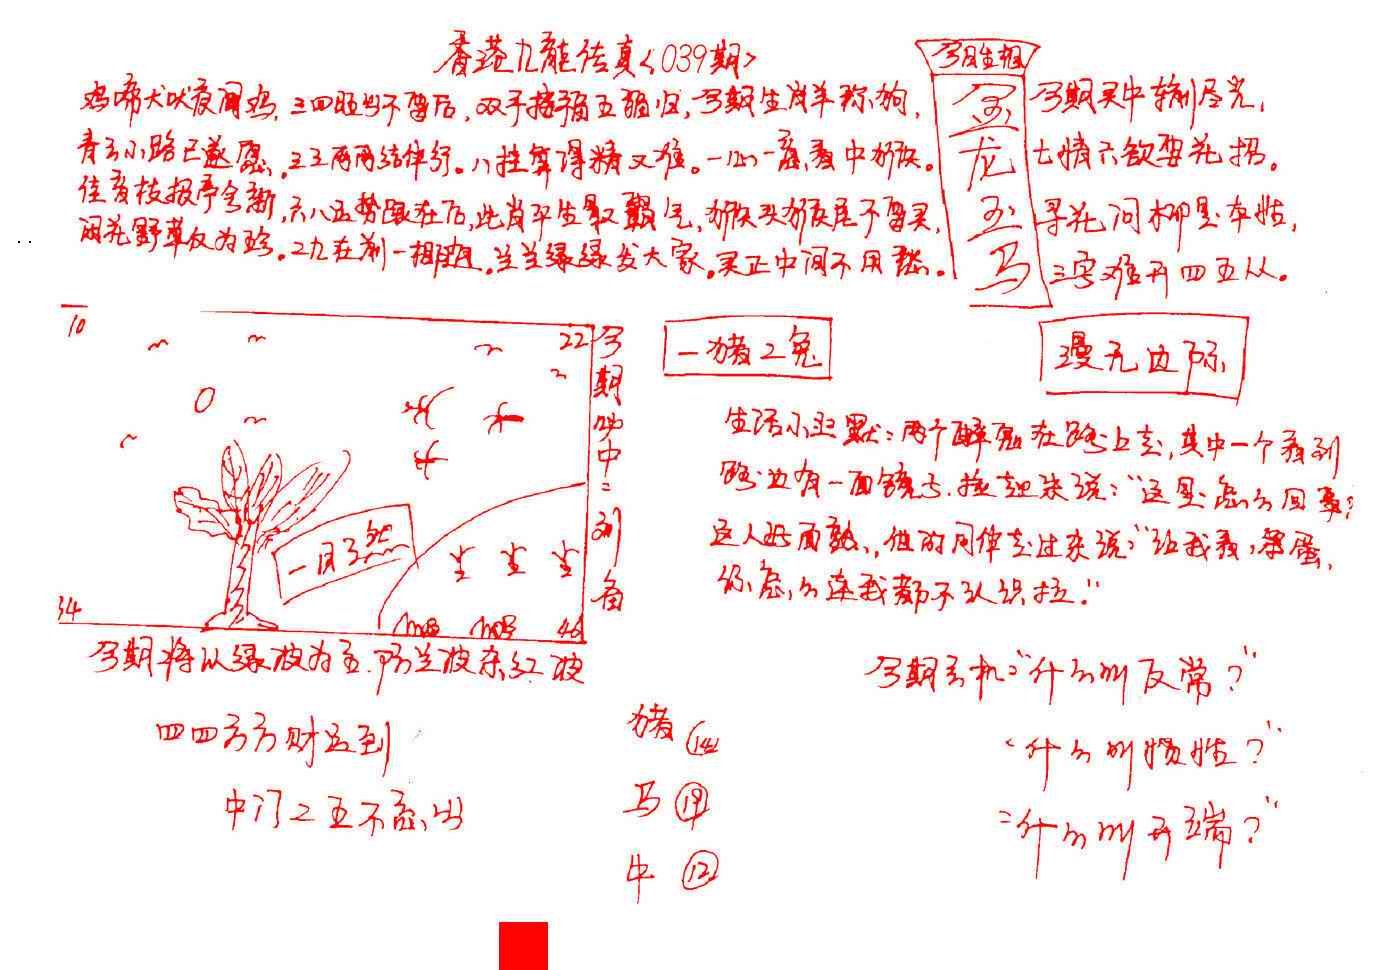 香港九龍传真<039期>
今日生相
鸡啼犬吠夜闻鸡,三四旺出不要后,双手接福五福归,今期生肖羊称狗,
今期买中输尽光,
青云小路已遂愿。三三两两结伴行。八挂算得精又准。一心一意看中猴。
七情六欲要花招。
佳音枝报季全新,六八近势跟在后,此肖平生最霸气,猴头猴尾不要买,
寻花问柳是本性,
闲花野草仅为珍。二九在前一相随。兰兰绿绿发大家。买正中间不用愁。
三字难开四五从。
金龙玉马
10
22
34
46
一目了然
今期必中二列各
一猪二兔
漫无边际
生活小幽默:两个醉鬼在路上走,其中一个看到
路边有一面镜子.捡起来说:"这是怎么回事?
这人好面熟,他的同伴走过来说:"给我看,笨蛋,
你怎么连我都不认识拉."
今期将以绿波为主.防兰波杀红波
今期玄机:"什么叫反常?"
"什么叫惯性?"
"什么叫开端?"
四四方方财运到
中门二五不意出
猪 ⑭
马 ⑲
牛 ⑫